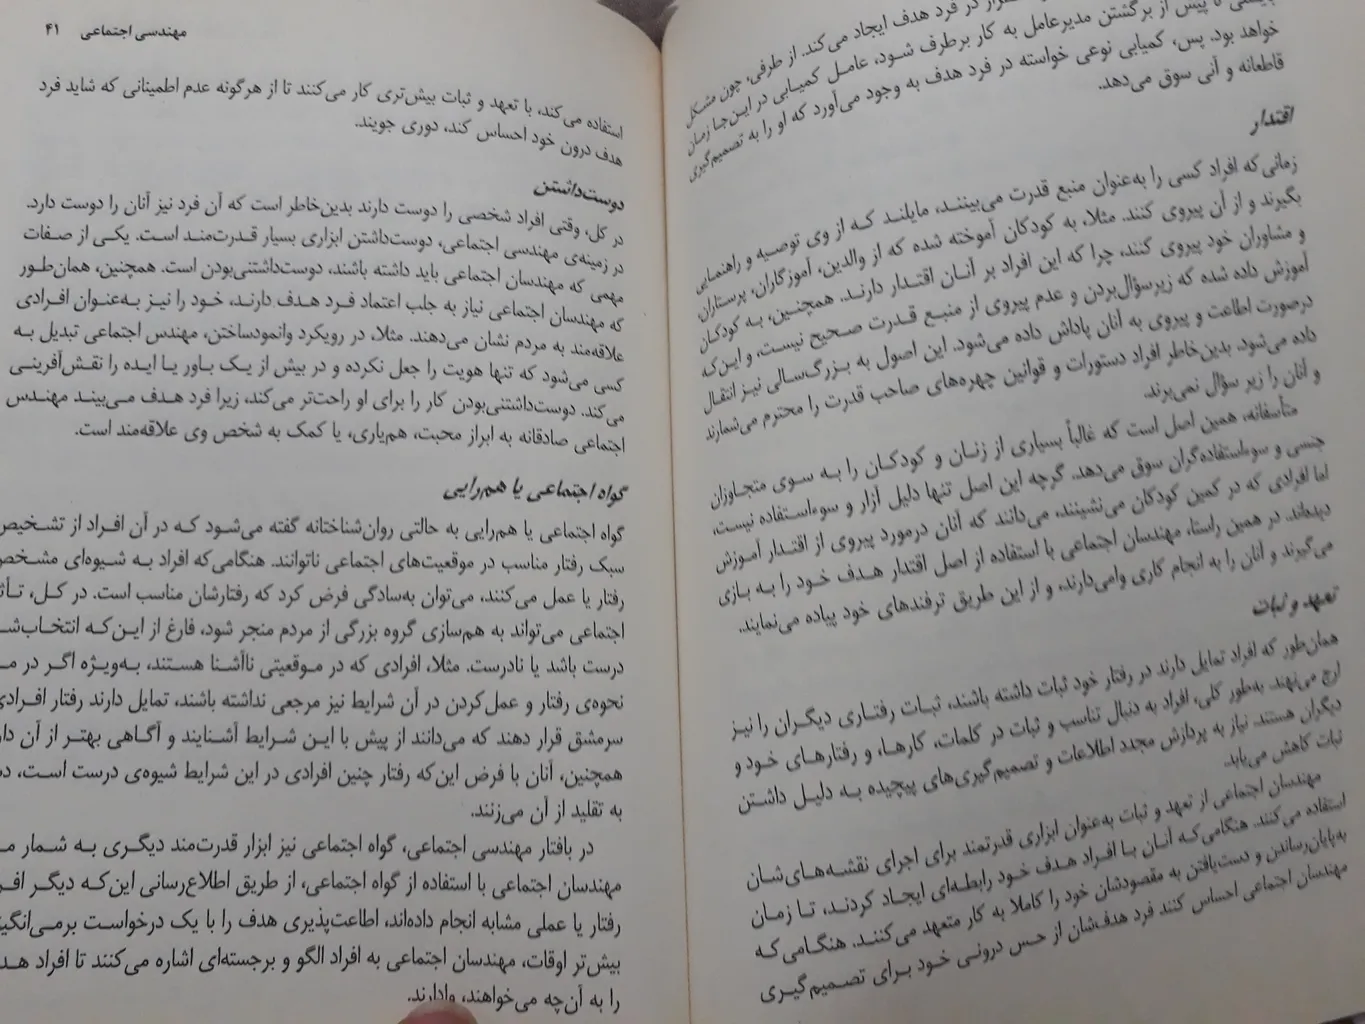 فرار در فرد هدف ایجاد می‌کند. از طرفی، چون مشکل
بایستی تا پیش از برگشتن مدیرعامل به کار برطرف شود، عامل کمیابی در این‌جا زمان
خواهد بود. پس، کمیابی نوعی خواسته در فرد هدف به وجود می‌آورد که او را به تصمیم‌گیری
قاطعانه و آنی سوق می‌دهد.
اقتدار
زمانی که افراد کسی را به‌عنوان منبع قدرت می‌بینند، مایلند که از وی توصیه و راهنمایی
بگیرند و از آن پیروی کنند. مثلا، به کودکان آموخته شده که از والدین، آموزگاران، پرستاران،
و مشاوران خود پیروی کنند، چرا که این افراد بر آنان اقتدار دارند. همچنین، به کودکان
آموزش داده شده که زیرسؤال‌بردن و عدم پیروی از منبع قدرت صحیح نیست، و این‌که
درصورت اطاعت و پیروی به آنان پاداش داده می‌شود. این اصول به بزرگ‌سالی نیز انتقال
داده می‌شود. بدین‌خاطر افراد دستورات و قوانین چهره‌های صاحب قدرت را محترم می‌شمارند
و آنان را زیر سؤال نمی‌برند.
متأسفانه، همین اصل است که غالباً بسیاری از زنان و کودکان را به سوی متجاوزان
جنسی و سوءاستفاده‌گران سوق می‌دهد. گرچه این اصل تنها دلیل آزار و سوءاستفاده نیست،
اما افرادی که در کمین کودکان می‌نشینند، می‌دانند که آنان درمورد پیروی از اقتدار آموزش
دیده‌اند. در همین راستا، مهندسان اجتماعی با استفاده از اصل اقتدار هدف خود را به بازی
می‌گیرند و آنان را به انجام کاری وامی‌دارند، و از این طریق ترفندهای خود پیاده می‌نمایند.
تعهد و ثبات
همان‌طور که افراد تمایل دارند در رفتار خود ثبات داشته باشند، ثبات رفتاری دیگران را نیز
ارج می‌نهند. به‌طور کلی، افراد به دنبال تناسب و ثبات در کلمات، کارها، و رفتارهای خود و
دیگران هستند. نیاز به پردازش مجدد اطلاعات و تصمیم‌گیری‌های پیچیده به دلیل داشتن
ثبات کاهش می‌یابد.
مهندسان اجتماعی از تعهد و ثبات به‌عنوان ابزاری قدرتمند برای اجرای نقشه‌های‌شان
استفاده می‌کنند. هنگامی‌که آنان با افراد هدف خود رابطه‌ای ایجاد کردند، تا زمان
به‌پایان‌رساندن و دست‌یافتن به مقصودشان خود را کاملا به کار متعهد می‌کنند. هنگامی که
مهندسان اجتماعی احساس کنند فرد هدف‌شان از حس درونی خود برای تصمیم‌گیری
مهندسی اجتماعی ۴۱
استفاده می‌کند، با تعهد و ثبات بیش‌تری کار می‌کنند تا از هرگونه عدم اطمینانی که شاید فرد
هدف درون خود احساس کند، دوری جویند.
دوست‌داشتن
در کل، وقتی افراد شخصی را دوست دارند بدین‌خاطر است که آن فرد نیز آنان را دوست دارد.
در زمینه‌ی مهندسی اجتماعی، دوست‌داشتن ابزاری بسیار قدرت‌مند است. یکی از صفات
مهمی که مهندسان اجتماعی باید داشته باشند، دوست‌داشتنی‌بودن است. همچنین، همان‌طور
که مهندسان اجتماعی نیاز به جلب اعتماد فرد هدف دارند، خود را نیز به‌عنوان افرادی
علاقه‌مند به مردم نشان می‌دهند. مثلا، در رویکرد وانمودساختن، مهندس اجتماعی تبدیل به
کسی می‌شود که تنها هویت را جعل نکرده و در بیش از یک باور یا ایده را نقش‌آفرینی
می‌کند. دوست‌داشتنی‌بودن کار را برای او راحت‌تر می‌کند، زیرا فرد هدف می‌بیند مهندس
اجتماعی صادقانه به ابراز محبت، هم‌یاری، یا کمک به شخص وی علاقه‌مند است.
گواه اجتماعی یا هم‌رایی
گواه اجتماعی یا هم‌رایی به حالتی روان‌شناختانه گفته می‌شود که در آن افراد از تشخیص
سبک رفتار مناسب در موقعیت‌های اجتماعی ناتوانند. هنگامی‌که افراد به شیوه‌ای مشخص
رفتار یا عمل می‌کنند، می‌توان به‌سادگی فرض کرد که رفتارشان مناسب است. در کل،
اجتماعی می‌تواند به هم‌سازی گروه بزرگی از مردم منجر شود، فارغ از این‌که
درست باشد یا نادرست. مثلا، افرادی که در موقعیتی ناآشنا هستند، به‌ویژه اگر در
نحوه‌ی رفتار و عمل‌کردن در آن شرایط نیز مرجعی نداشته باشند، تمایل دارند رفتار افرادی
سرمشق قرار دهند که می‌دانند از پیش با این شرایط آشنایند و آگاهی بهتر از آن
همچنین، آنان با فرض این‌که رفتار چنین افرادی در این شرایط شیوه‌ی درست است،
به تقلید از آن می‌زنند.
در بافتار مهندسی اجتماعی، گواه اجتماعی نیز ابزار قدرت‌مند دیگری به شمار
مهندسان اجتماعی با استفاده از گواه اجتماعی، از طریق اطلاع‌رسانی این‌که دیگر
رفتار یا عملی مشابه انجام داده‌اند، اطاعت‌پذیری هدف را با یک درخواست
بیش‌تر اوقات، مهندسان اجتماعی به افراد الگو و برجسته‌ای اشاره می‌کنند تا افراد
را به آن‌چه می‌خواهند، وادارند.